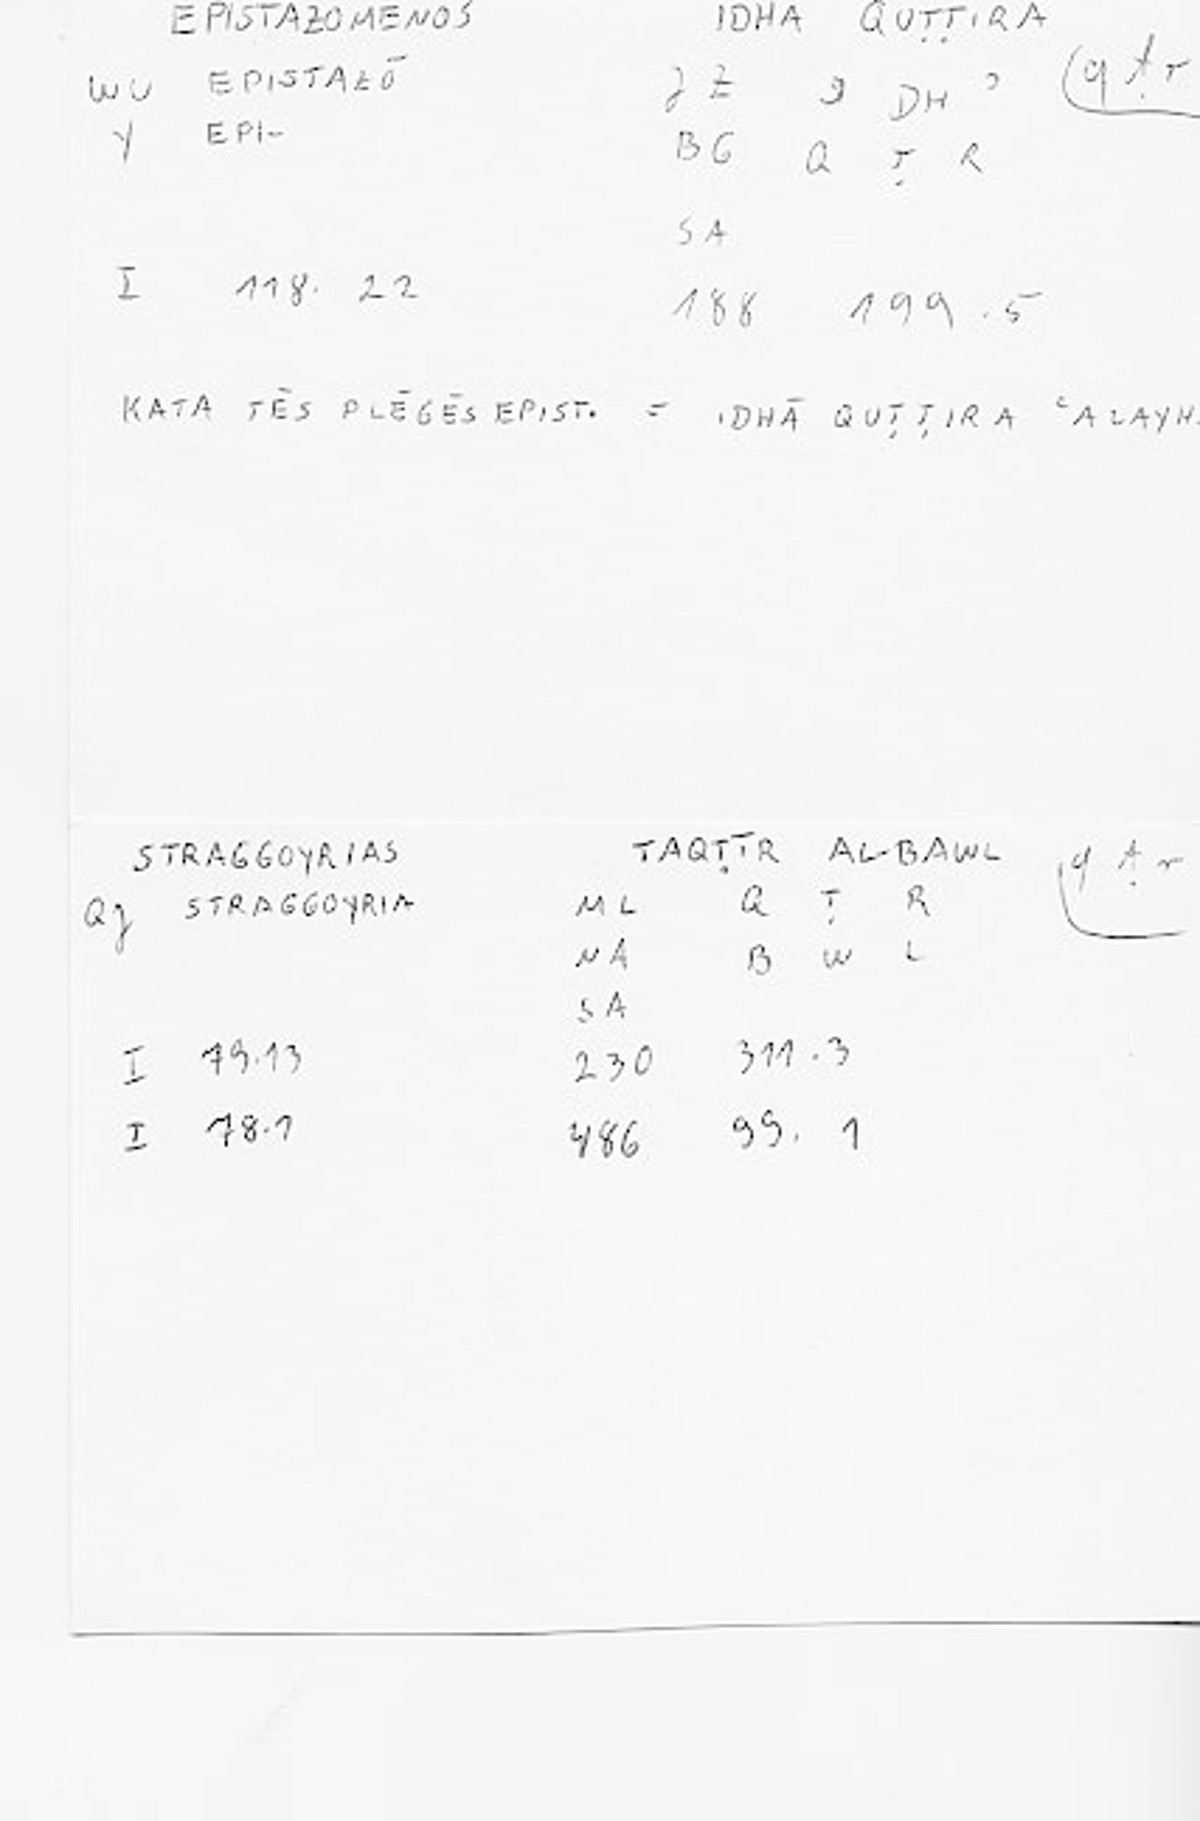 EPISTAZOMENOS IDHA QUṬṬIRA
WU EPISTAZŌ JZ ' DH ' qṭr
Y EPI- BG Q Ṭ R
SA
I 118. 22 188 199.5
KATA TĒS PLĒGĒS EPIST. = IDHĀ QUṬṬIRA ʿALAYH
STRAGGOYRIAS TAQṬĪR AL-BAWL qṭr
QJ STRAGGOYRIA ML Q Ṭ R
NA B W L
SA
I 79.13 230 311.3
I 78.1 486 99. 1